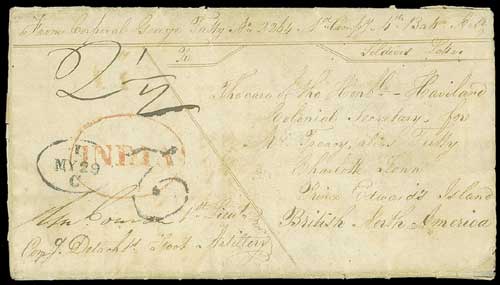 From Corporal George Tutty No 2264 1st Compy 4th Battn Arty
Soldiers Letter
2 1/2
The care of the Honble - Haviland
Colonial Secretary for
Mr Tpeary, alias Tutty
Charlotte Town
Prince Edward's Island
British North America
INDIA
MY 29
C
3
1st Lieut
Comg Detacht Foot Artillery